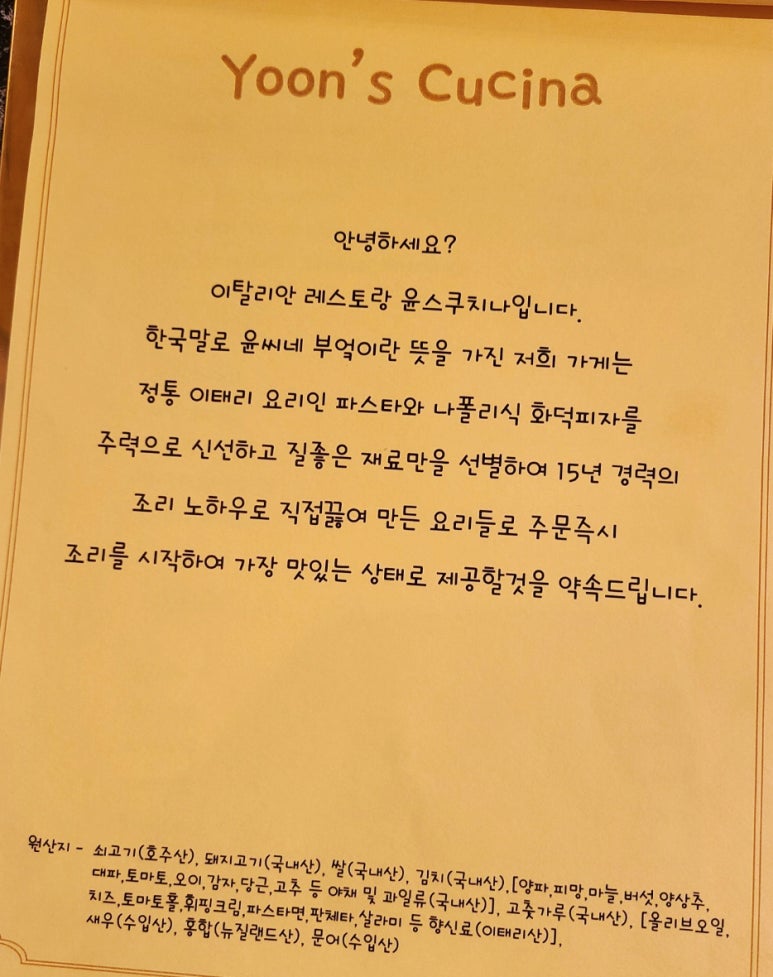 Yoon's Cucina
안녕하세요?
이탈리안 레스토랑 윤스쿠치나입니다.
한국말로 윤씨네 부엌이란 뜻을 가진 저희 가게는
정통 이태리 요리인 파스타와 나폴리식 화덕피자를
주력으로 신선하고 질좋은 재료만을 선별하여 15년 경력의
조리 노하우로 직접끓여 만든 요리들로 주문즉시
조리를 시작하여 가장 맛있는 상태로 제공할것을 약속드립니다.
원산지 - 쇠고기(호주산), 돼지고기(국내산), 쌀(국내산), 김치(국내산),[양파,피망,마늘,버섯,양상추,
대파,토마토,오이,감자,당근,고추 등 야채 및 과일류(국내산)], 고춧가루(국내산), [올리브오일,
치즈,토마토홀,휘핑크림,파스타면,판체타,살라미 등 향신료(이태리산)],
새우(수입산), 홍합(뉴질랜드산), 문어(수입산)